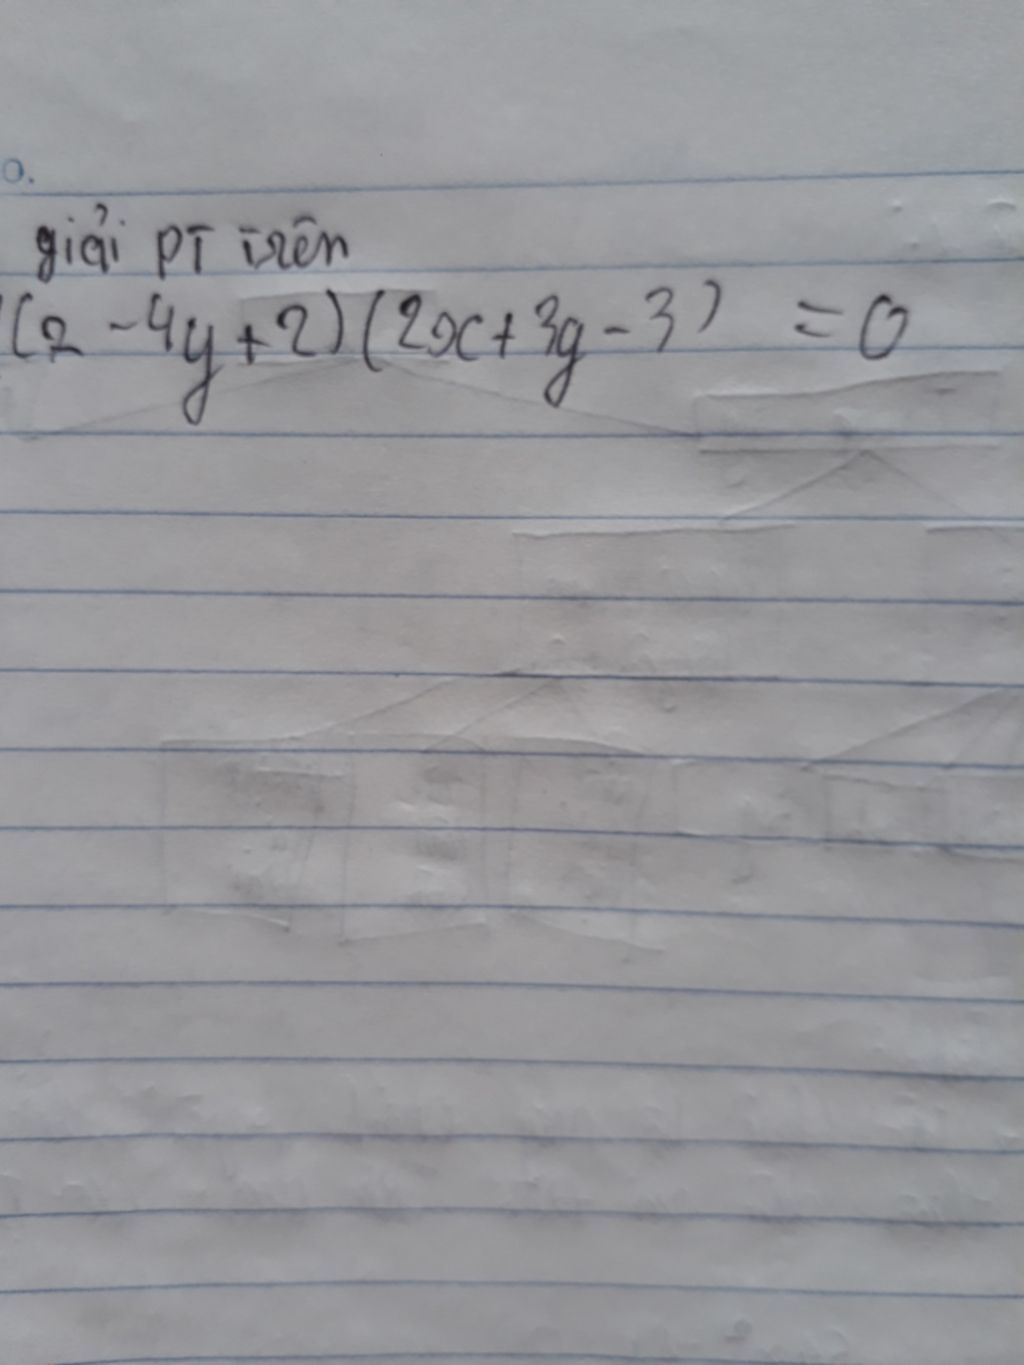 0.
giải PT trên
(2 - 4y + 2) (2x + 3y - 3) = 0